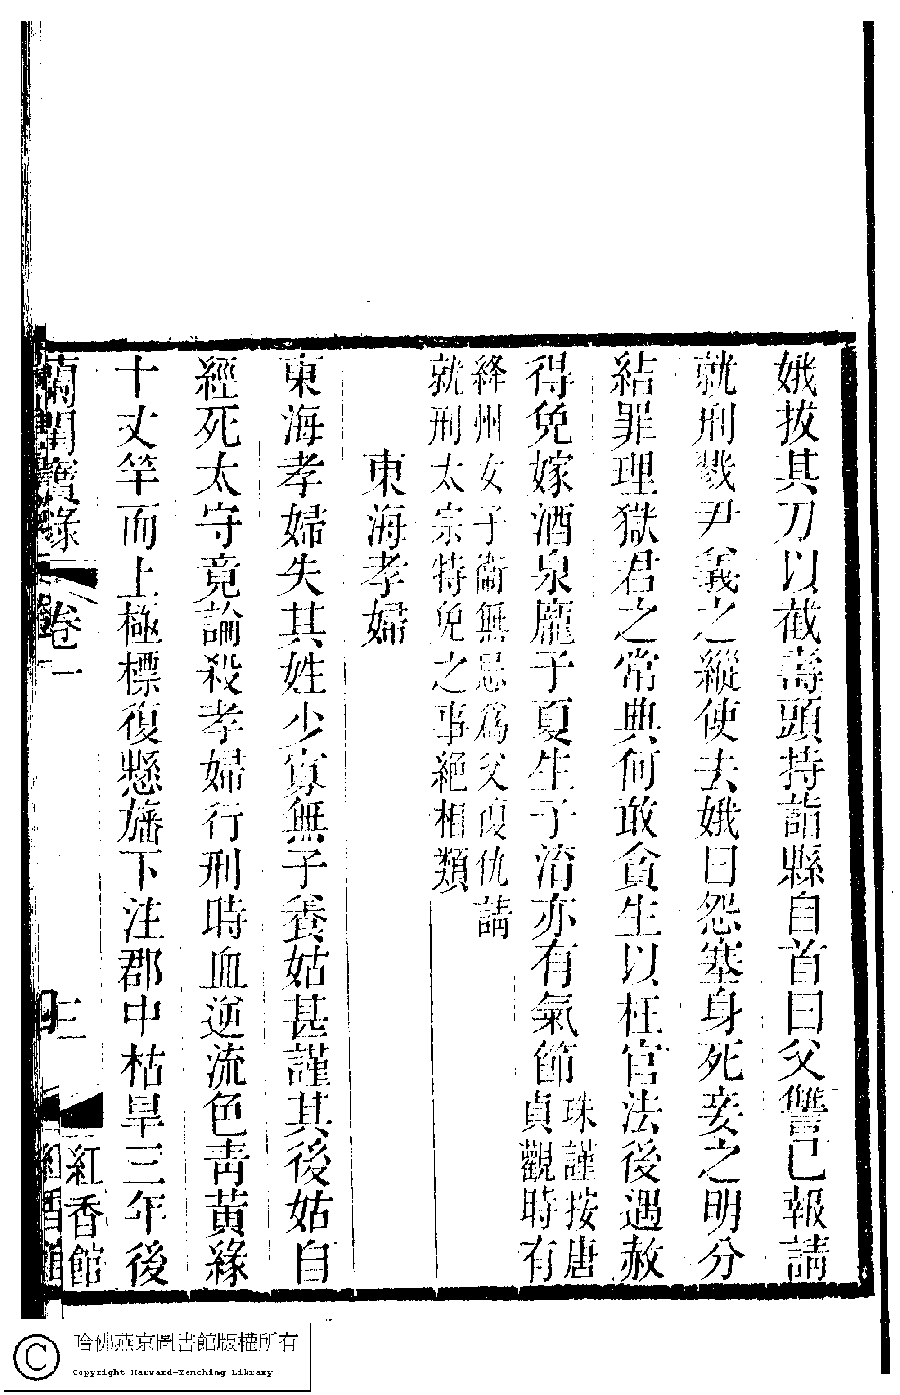 娥拔其刀以截壽頭持詣縣自首曰父讐已報請
就刑戮尹義之縱使去娥曰怨塞身死妾之明分
結罪理獄君之常典何敢貪生以枉官法後遇赦
得免嫁酒泉龐子夏生子淯亦有氣節
珠謹按唐
貞觀時有
絳州女子衛無忌爲父復仇請
就刑太宗特免之事絶相類
東海孝婦
東海孝婦失其姓少寡無子養姑甚謹其後姑自
經死太守竟論殺孝婦行刑時血逆流色靑黃緣
十丈竿而上極標復懸旛下注郡中枯旱三年後
蘭閨寶錄 卷一 三 紅香館
哈佛燕京圖書館版權所有
Copyright Harvard-Yenching Library